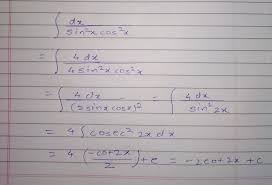 ∫ dx / sin²x cos²x
= ∫ 4 dx / 4 sin²x cos²x
= ∫ 4 dx / (2 sinx cosx)² = ∫ 4 dx / sin² 2x
= 4 ∫ cosec² 2x dx
= 4 (-cot2x / 2) + c = -2cot2x + c